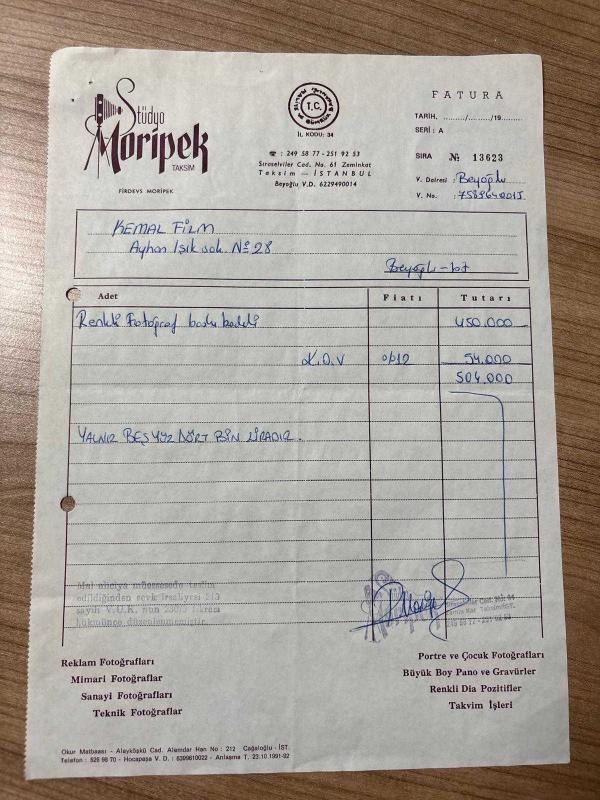 Stüdyo
Moripek
TAKSİM
FİRDEVS MORİPEK
T.C.
İL KODU: 34
☎ : 249 58 77 - 251 92 53
Sıraselviler Cad. No. 61 Zeminkat
Taksim — İSTANBUL
Beyoğlu V.D. 6229490014
FATURA
TARİH, ......../......../19........
SERİ : A
SIRA № 13623
V. Dairesi : Beyoğlu
V. No. :
KEMAL FİLM
Ayhan Işık sok. No 28
Beyoğlu - ist
Adet Fiatı Tutarı
Renkli Fotoğraf baskı bedeli 450.000
K.D.V %12 54.000
504.000
YALNIZ BEŞYÜZ DÖRT BİN LİRADIR.
Mal alıcıya müessesede teslim
edildiğinden sevk irsaliyesi 213
sayılı V.U.K. nun
hükmünce düzenlenmemiştir.
Reklam Fotoğrafları
Mimari Fotoğraflar
Sanayi Fotoğrafları
Teknik Fotoğraflar
Portre ve Çocuk Fotoğrafları
Büyük Boy Pano ve Gravürler
Renkli Dia Pozitifler
Takvim İşleri
Okur Matbaası - Alayköşkü Cad. Alemdar Han No : 212 Cağaloğlu - İST.
Telefon : 526 98 70 - Hocapaşa V. D. : 6399610022 - Anlaşma T. 23.10.1991-92